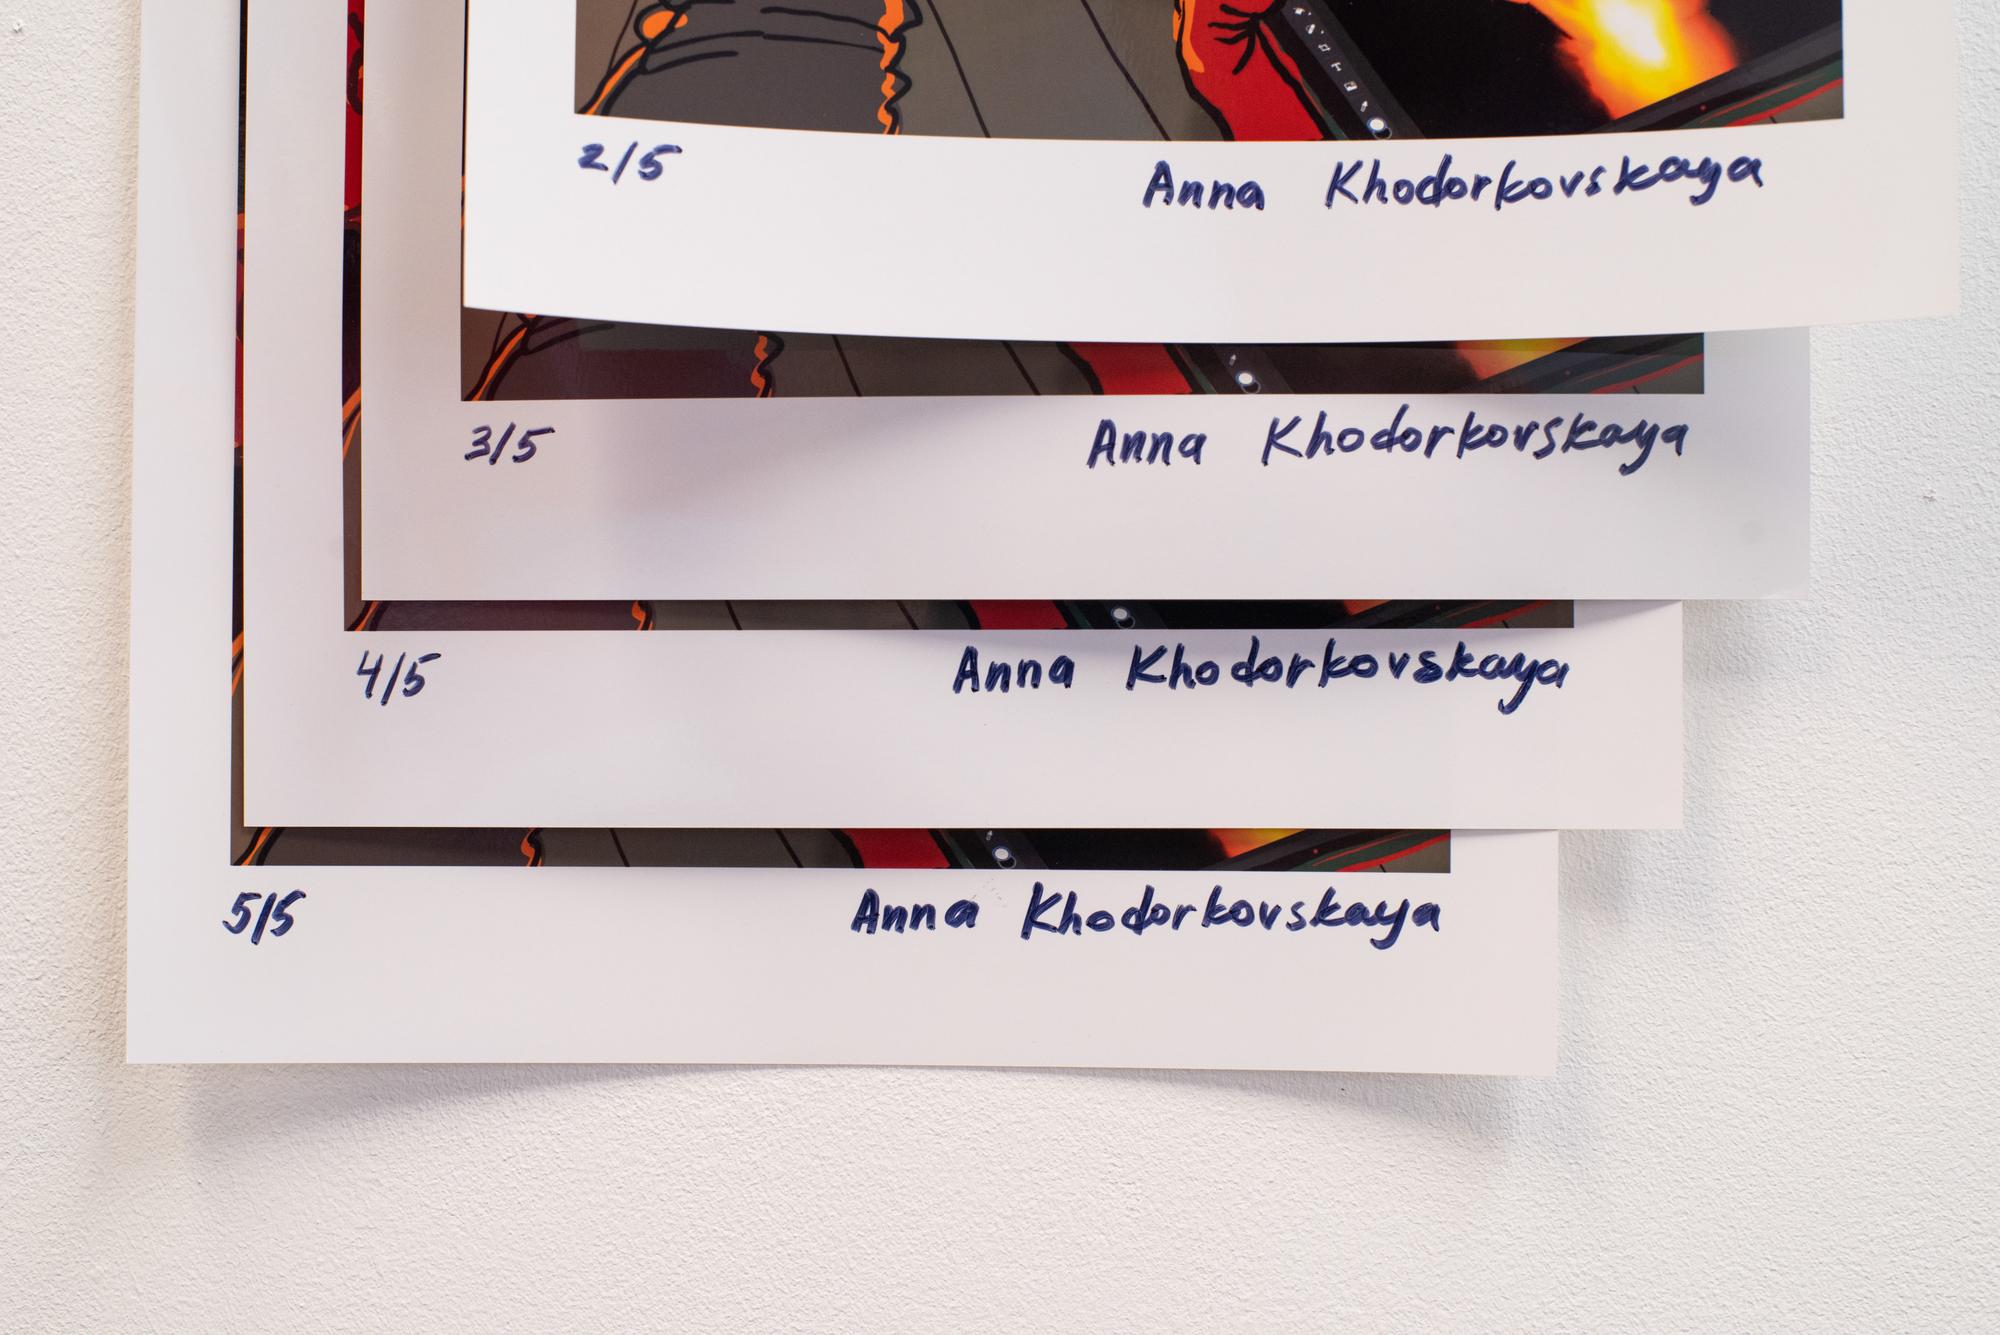 2/5 Anna Khodorkovskaya
3/5 Anna Khodorkovskaya
4/5 Anna Khodorkovskaya
5/5 Anna Khodorkovskaya